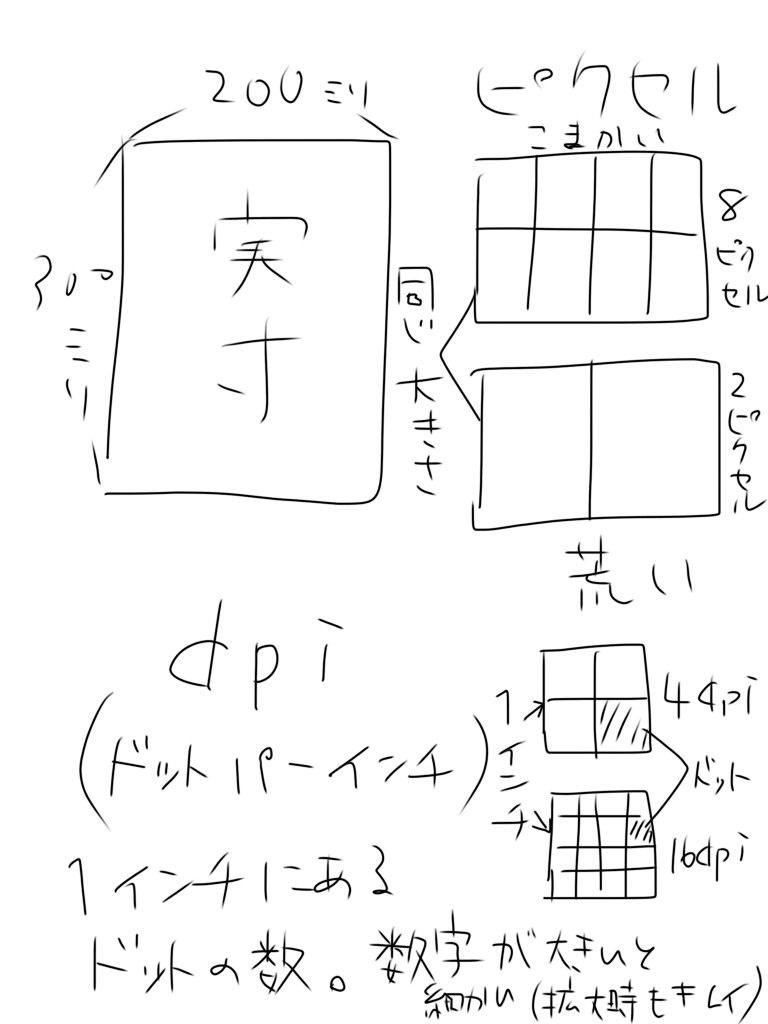 200ミリ
300ミリ
実寸
ピクセル
こまかい
8ピクセル
同じ大きさ
2ピクセル
荒い
dpi
(ドットパーインチ)
1インチ
4dpi
ドット
16dpi
1インチにある
ドットの数。数字が大きいと
細かい(拡大時もキレイ)